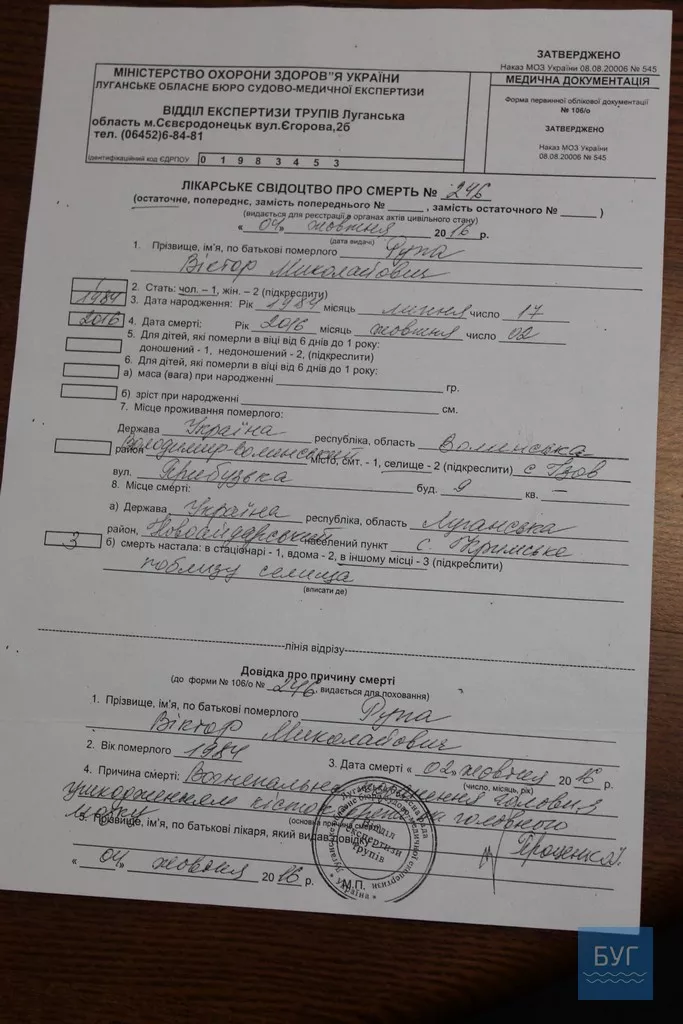 ЗАТВЕРДЖЕНО
Наказ МОЗ України 08.08.20006 № 545
МІНІСТЕРСТВО ОХОРОНИ ЗДОРОВ"Я УКРАЇНИ
ЛУГАНСЬКЕ ОБЛАСНЕ БЮРО СУДОВО-МЕДИЧНОЇ ЕКСПЕРТИЗИ
ВІДДІЛ ЕКСПЕРТИЗИ ТРУПІВ Луганська
область м.Сєвєродонецьк вул.Єгорова,2б
тел. (06452)6-84-81
ідентифікаційний код ЄДРПОУ 0 1 9 8 3 4 5 3
МЕДИЧНА ДОКУМЕНТАЦІЯ
Форма первинної облікової документації
№ 106/о
ЗАТВЕРДЖЕНО
Наказ МОЗ України
08.08.20006 № 545
ЛІКАРСЬКЕ СВІДОЦТВО ПРО СМЕРТЬ № 246
(остаточне, попереднє, замість попереднього № , замість остаточного № )
(видається для реєстрації в органах актів цивільного стану)
« 04 » жовтня 2016 р.
(дата видачі)
1. Прізвище, ім'я, по батькові померлого Рупа
Віктор Миколайович
1 2. Стать: чол. – 1, жін. – 2 (підкреслити)
1984 3. Дата народження: Рік 1984 місяць липня число 17
2016 4. Дата смерті: Рік 2016 місяць жовтня число 02
5. Для дітей, які померли в віці від 6 днів до 1 року:
доношений - 1, недоношений - 2, (підкреслити)
6. Для дітей, які померли в віці від 6 днів до 1 року:
а) маса (вага) при народженні гр.
б) зріст при народженні см.
7. Місце проживання померлого:
Держава Україна республіка, область Волинська
район Володимир-Волинський місто, смт. - 1, селище - 2 (підкреслити) с
вул. Прибузька буд. 9 кв. –
8. Місце смерті:
а) Держава Україна республіка, область Луганська
район, Новоайдарський населений пункт с. Кримське
3 б) смерть настала: в стаціонарі - 1, вдома - 2, в іншому місці - 3 (підкреслити)
поблизу селища
(вписати де)
лінія відрізу
Довідка про причину смерті
(до форми № 106/о № 246, видається для поховання)
1. Прізвище, ім'я, по батькові померлого Рупа
Віктор Миколайович
2. Вік померлого 1984 3. Дата смерті « 02 » жовтня 2016 р.
(число, місяць, рік)
4. Причина смерті: Вогнепальне поранення голови з
ушкодженням кісток головного
мозку (основна причина смерті)
5. Прізвище, ім'я, по батькові лікаря, який видав довідку
« 04 » жовтня 2016 р. М.П.
Відділ
експертизи
трупів
* Україна *
БУГ